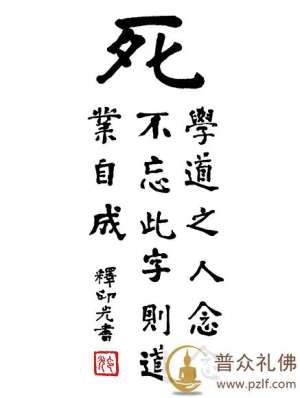 死
學道之人念
不忘此字則道
業自成
釋印光書
普众礼佛
www.pzlf.com